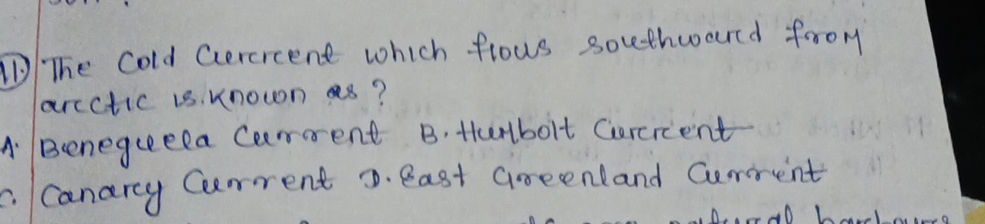 11) The Cold Current which flows southward from
arctic is known as ?
A. Beneguela Current B. Humbolt Current
C. Canary Current D. East Greenland Current